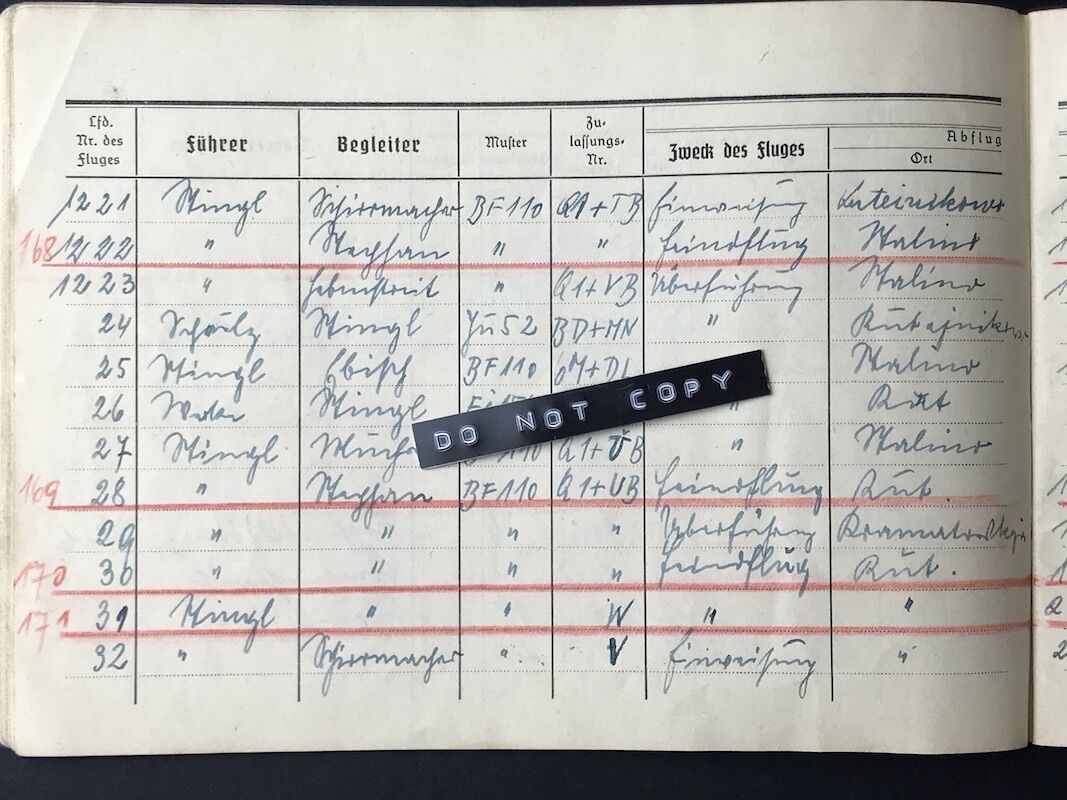 Lfd. Nr. des Fluges Führer Begleiter Muster Zulassungs-Nr. Zweck des Fluges Abflug Ort
1221 Stingl Schirrmacher BF110 Q1+TB Einweisung
168 1222 " Stephan " " Feindflug Stalino
1223 " Hebenstreit " Q1+VB Überführung Stalino
24 Schulz Stingl Ju52 BD+MN " Kutejnikowo
25 Stingl Ebisch BF110 " Stalino
26 Stingl " Kut
27 Stingl Q1+UB " Stalino
169 28 " Stephan BF110 Q1+UB Feindflug Kut.
29 " " " " Überführung Kramatorskaja
170 30 " " " " Feindflug Kut.
171 31 Stingl " " W " "
32 " Schirrmacher " V Einweisung "
DO NOT COPY